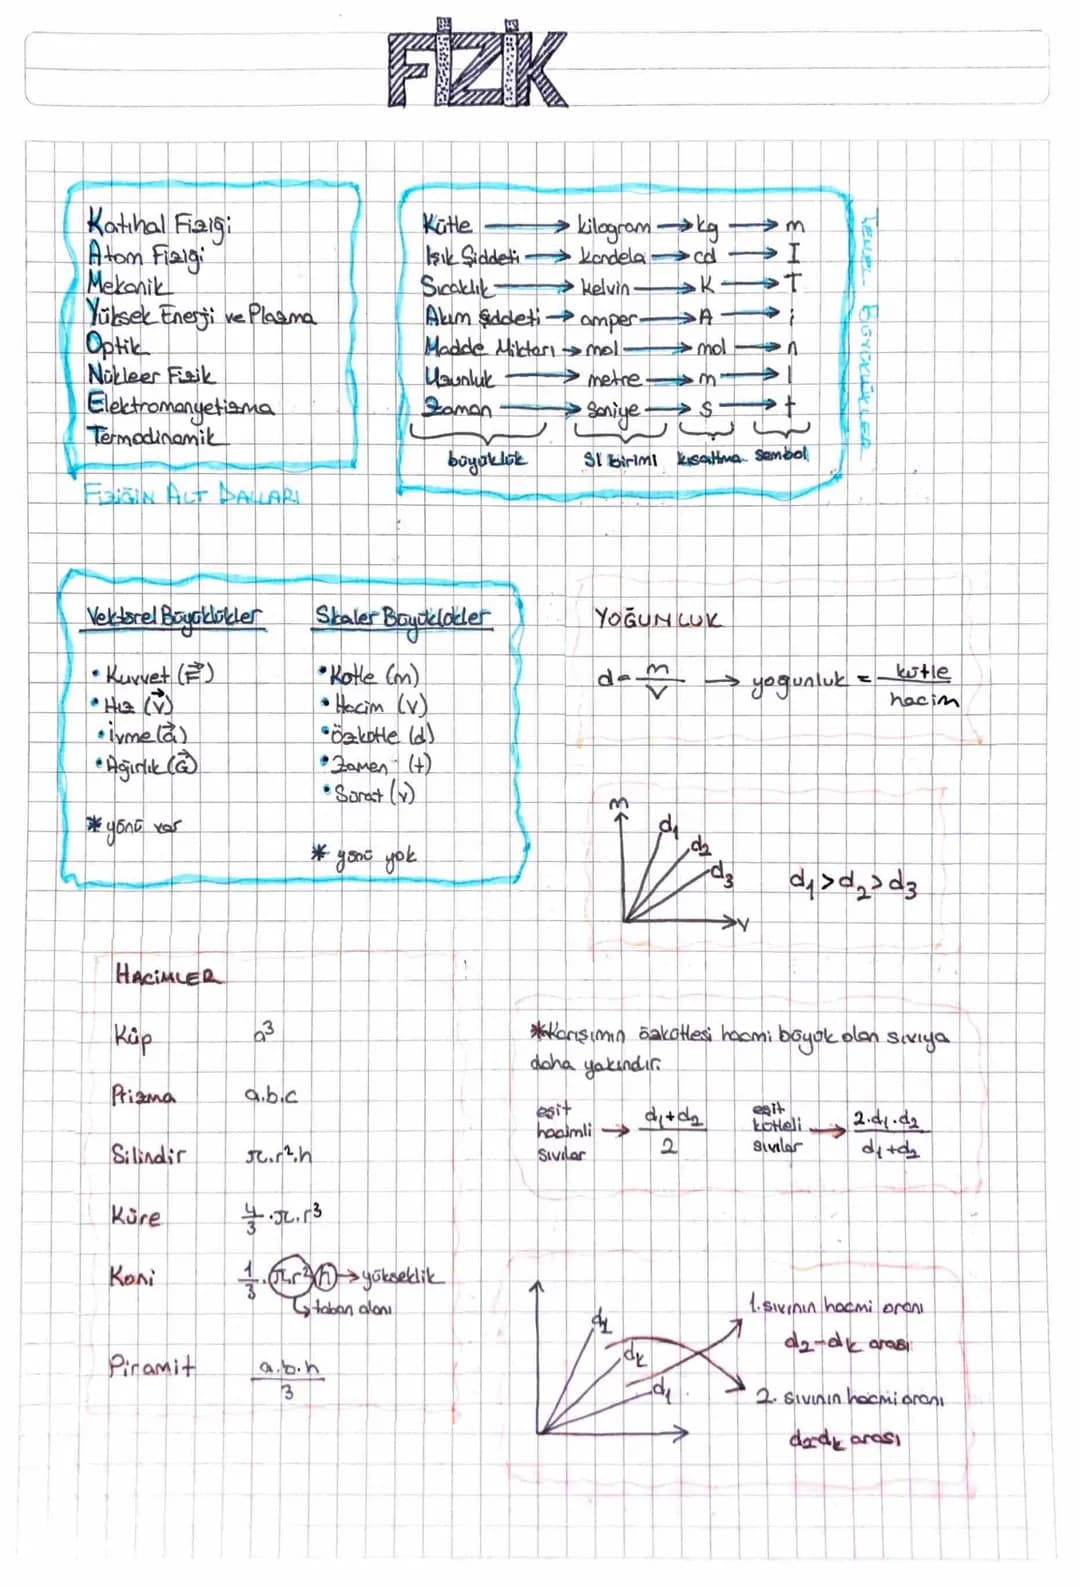 FİZİK
Katıhal Fiziği
Atom Fiziği
Mekanik
Yüksek Enerji ve Plazma
Optik
Nükleer Fizik
Elektromanyetizma
Termodinamik
FİZİĞİN ALT DALLARI
Kütle → kilogram → kg → m
Işık Şiddeti → kandela → cd → I
Sıcaklık → kelvin → K → T
Akım Şiddeti → amper → A → i
Madde Miktarı → mol → mol → n
Uzunluk → metre → m → l
Zaman → saniye → s → t
büyüklük SI birimi kısaltma sembol
TEMEL BÜYÜKLÜKLER
Vektörel Büyüklükler
• Kuvvet (F⃗)
• Hız (v⃗)
• ivme (a⃗)
• Ağırlık (G⃗)
* yönü var
Skaler Büyüklükler
• Kütle (m)
• Hacim (v)
• özkütle (d)
• Zaman (t)
• Sürat (v)
* yönü yok
YOĞUNLUK
d = m/v → yoğunluk = kütle/hacim
m
d₁
d₂
d₃
v
d₁ > d₂ > d₃
HACİMLER
Küp a³
Prizma a.b.c
Silindir π.r².h
Küre 4/3 .π.r³
Koni 1/3 .π.r² h → yükseklik
↳ taban alanı
Piramit a.b.h/3
* Karışımın özkütlesi hacmi büyük olan sıvıya
daha yakındır.
eşit
hacimli → d₁+d₂/2
sıvılar
eşit
kütleli → 2.d₁.d₂/d₁+d₂
sıvılar
d₂
dk
d₁
1. sıvının hacmi oranı
d₂-dk arası
2. sıvının hacmi oranı